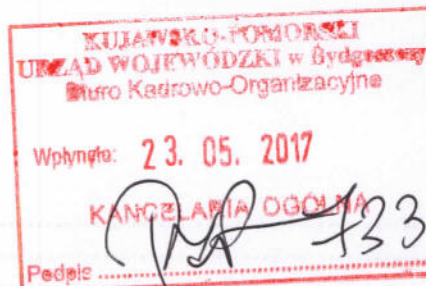 KUJAWSKO-POMORSKI
URZĄD WOJEWÓDZKI w Bydgoszczy
Biuro Kadrowo-Organizacyjne
Wpłynęło: 23. 05. 2017
KANCELARIA OGÓLNA
733
Podpis ........................